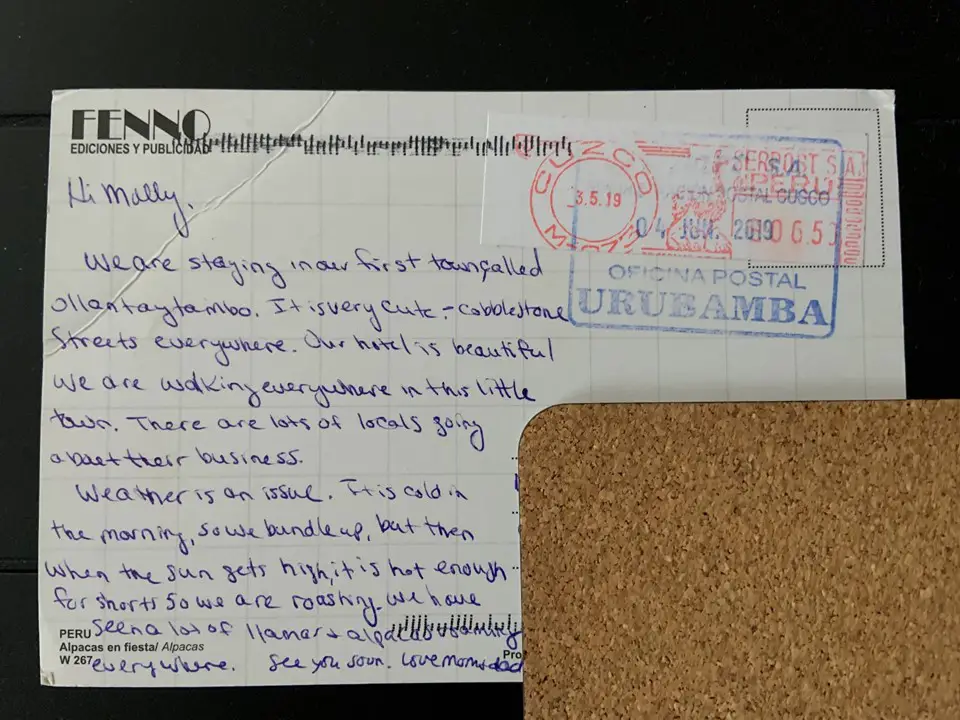 FENNO
EDICIONES Y PUBLICIDAD
CUZCO
3.5.19
SERPOST S.A.
PERU
POSTAL CUSCO
04 JUN. 2019
06.5
OFICINA POSTAL
URUBAMBA
Hi Molly,
We are staying in our first town called
Ollantaytambo. It is very cute - cobblestone
Streets everywhere. Our hotel is beautiful
We are walking everywhere in this little
town. There are lots of locals going
about their business.
Weather is an issue. It is cold in
the morning, so we bundle up, but then
when the sun gets high, it is hot enough
for shorts so we are roasting. We have
seen a lot of llamas + alpacas roaming
everywhere. See you soon. Love mom & dad
PERU
Alpacas en fiesta/ Alpacas
W 267
Pro